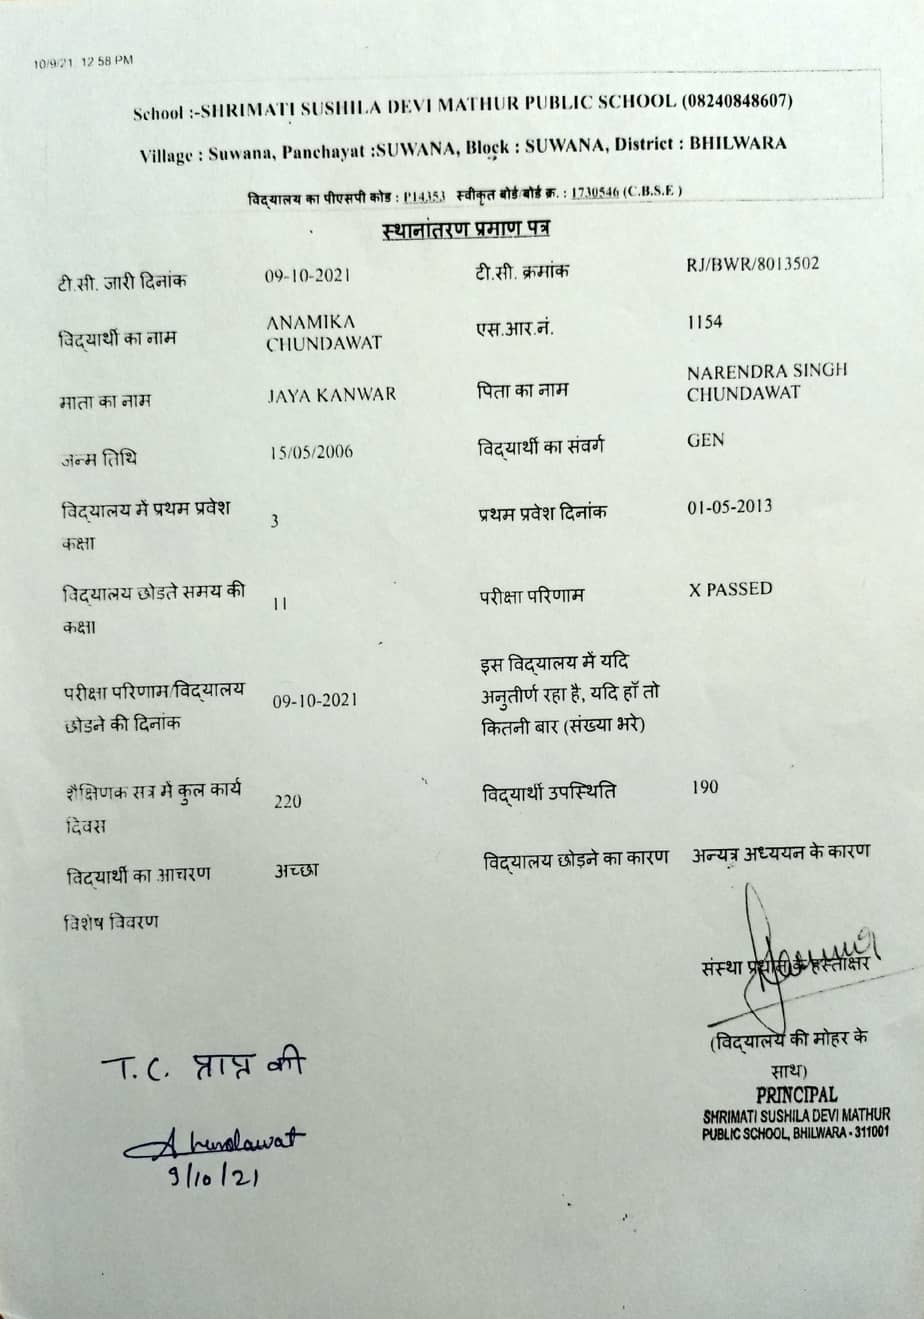 10/9/21 12:58 PM
School :-SHRIMATI SUSHILA DEVI MATHUR PUBLIC SCHOOL (08240848607)
Village : Suwana, Panchayat :SUWANA, Block : SUWANA, District : BHILWARA
विद्यालय का पीएसपी कोड : P14353 स्वीकृत बोर्ड/बोर्ड क्र. : 1730546 (C.B.S.E )
स्थानांतरण प्रमाण पत्र
टी.सी. जारी दिनांक 09-10-2021 टी.सी. क्रमांक RJ/BWR/8013502
विद्यार्थी का नाम ANAMIKA CHUNDAWAT एस.आर.नं. 1154
माता का नाम JAYA KANWAR पिता का नाम NARENDRA SINGH CHUNDAWAT
जन्म तिथि 15/05/2006 विद्यार्थी का संवर्ग GEN
विद्यालय में प्रथम प्रवेश कक्षा 3 प्रथम प्रवेश दिनांक 01-05-2013
विद्यालय छोडते समय की कक्षा 11 परीक्षा परिणाम X PASSED
परीक्षा परिणाम/विद्यालय छोडने की दिनांक 09-10-2021 इस विद्यालय में यदि अनुतीर्ण रहा है, यदि हाँ तो कितनी बार (संख्या भरे)
शैक्षिणक सत्र में कुल कार्य दिवस 220 विद्यार्थी उपस्थिति 190
विद्यार्थी का आचरण अच्छा विद्यालय छोड़ने का कारण अन्यत्र अध्ययन के कारण
विशेष विवरण
संस्था प्रधान के हस्ताक्षर
(विद्यालय की मोहर के
साथ)
PRINCIPAL
SHRIMATI SUSHILA DEVI MATHUR
PUBLIC SCHOOL, BHILWARA - 311001
T.C. प्राप्त की
AChundawat
9/10/21